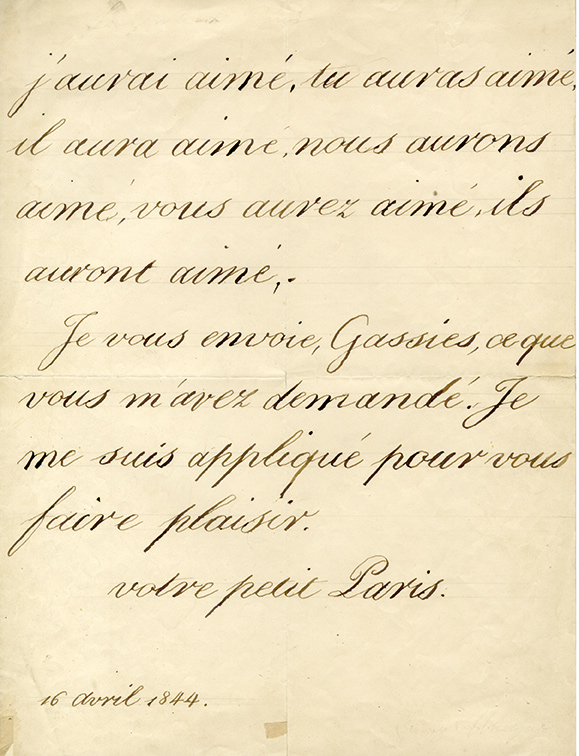 j'aurai aimé, tu auras aimé,
il aura aimé, nous aurons
aimé, vous aurez aimé, ils
auront aimé,.
Je vous envoie, Gassies, ce que
vous m'avez demandé. Je
me suis appliqué pour vous
faire plaisir.
votre petit Paris.
16 avril 1844.